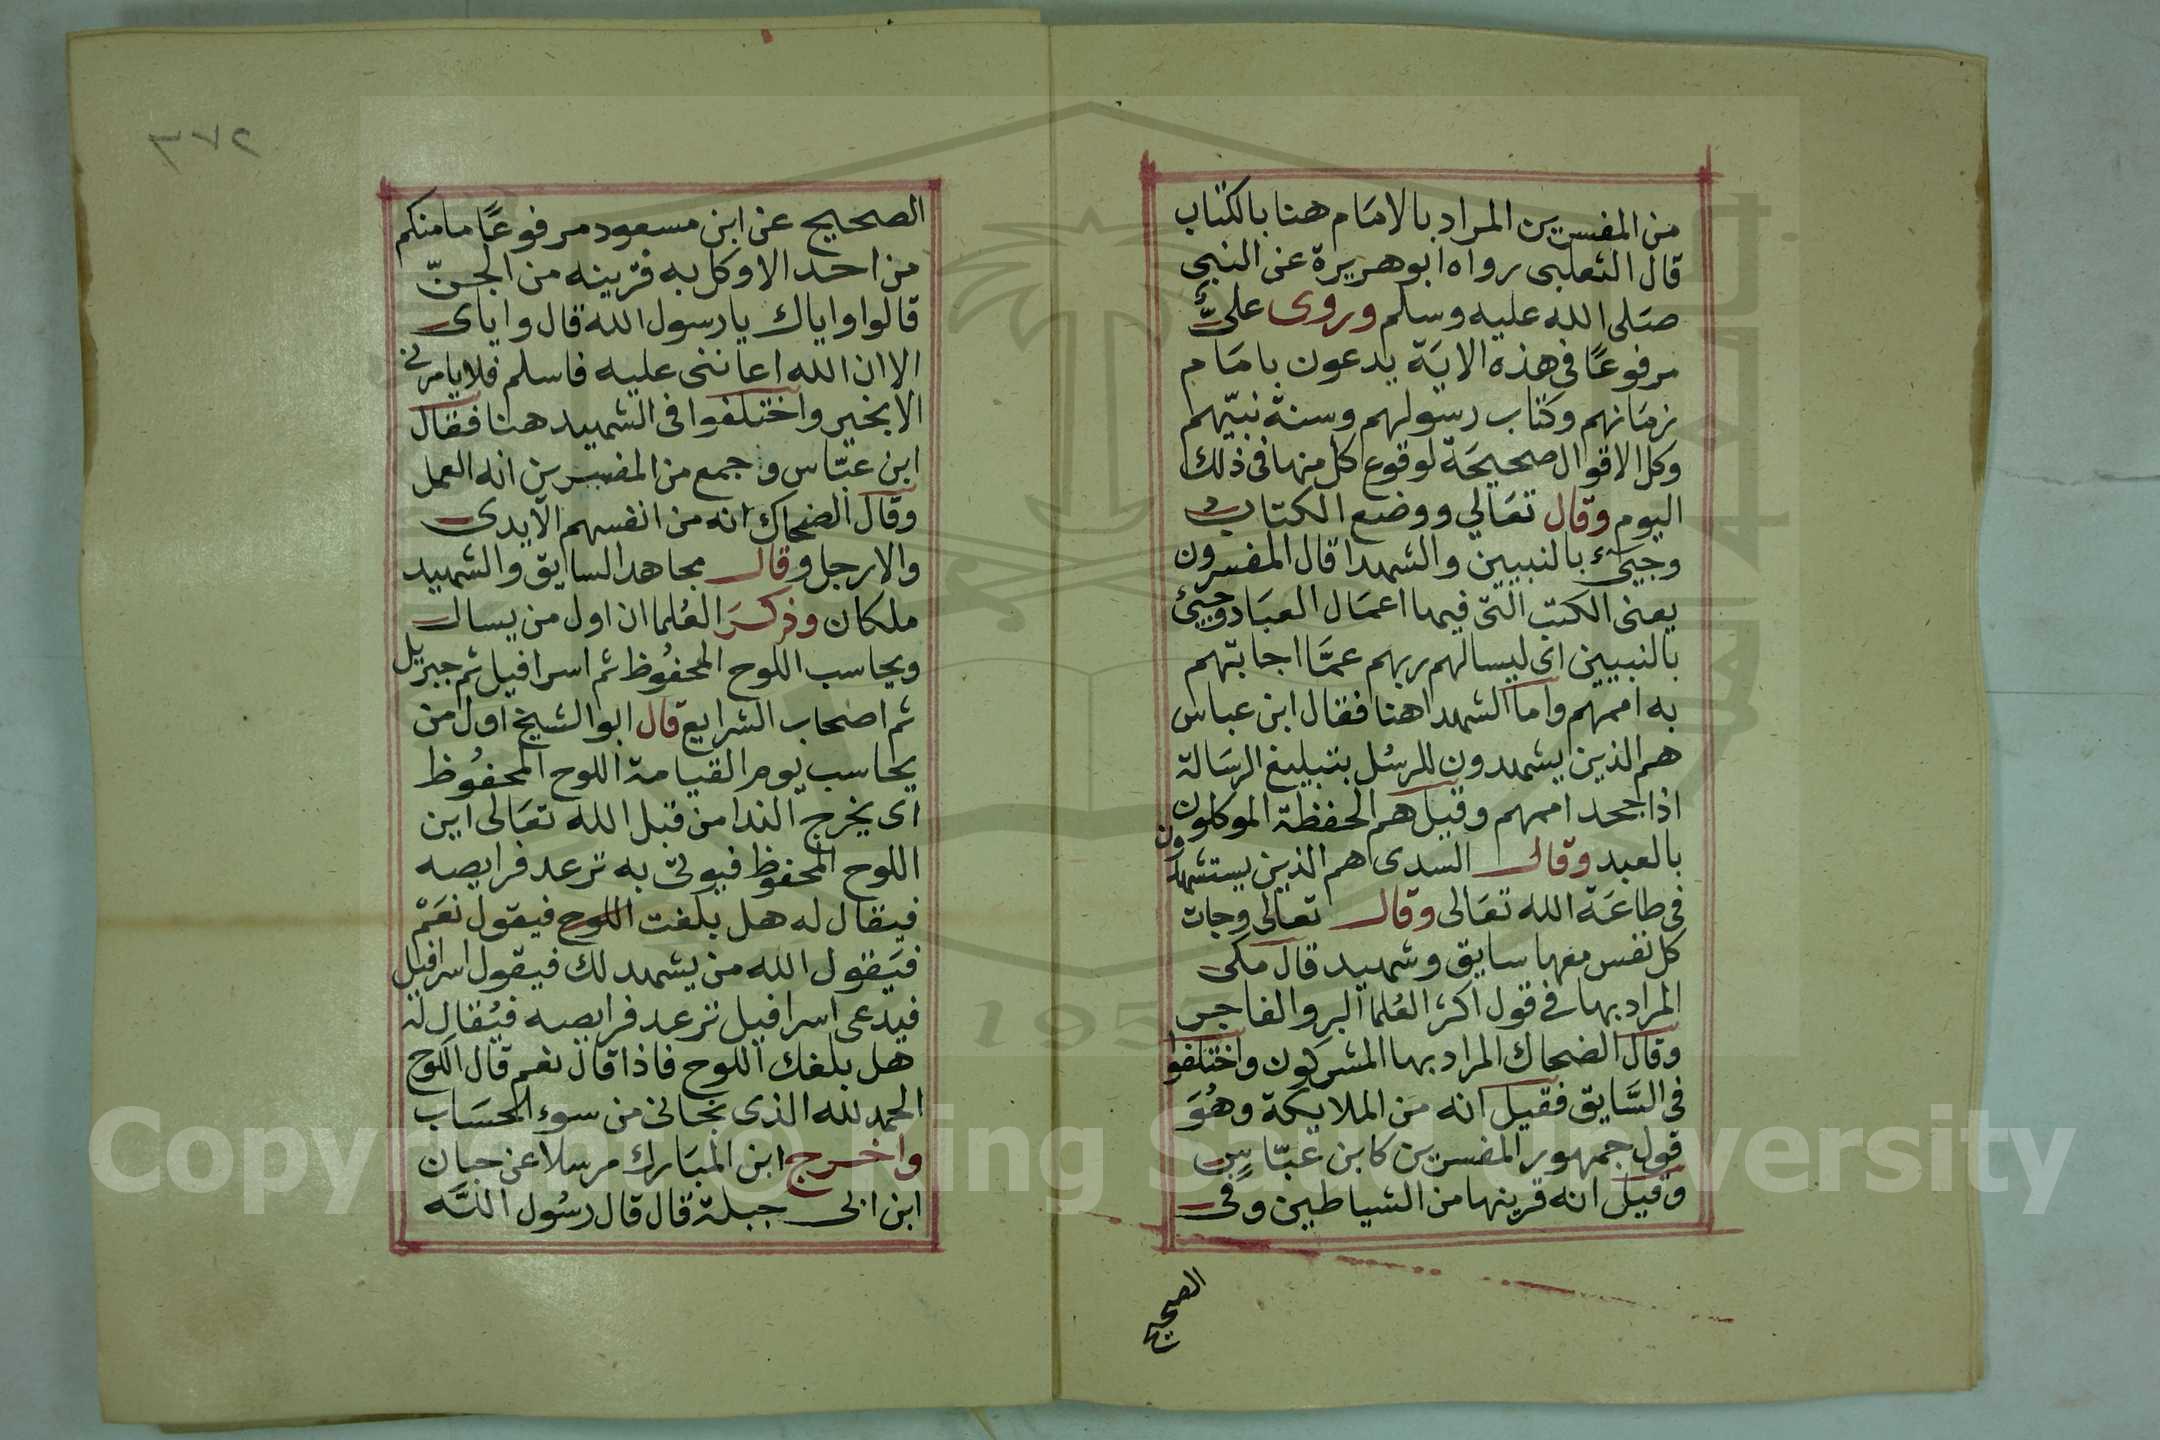 من المفسرين المراد بالامام هنا بالكتاب
قال الثعلبى رواه ابوهريرة عن النبي
صلى الله عليه وسلم وروى علىّ
مرفوعًا فى هذه الاية يدعون بامام
زمانهم وكتاب رسولهم وسنة نبيّهم
وكل الاقوال صحيحة لوقوع كل منها فى ذلك
اليوم وقال تعالي ووضع الكتاب
وجيء بالنبيين والشهدا قال المفسرون
يعنى الكتب التى فيها اعمال العباد وجيئ
بالنبيين اى ليسالهم ربهم عمّا اجابتهم
به اممهم واما الشهدا هنا فقال ابن عباس
هم الذين يشهدون للرسُل بتبليغ الرسالة
اذا جحد اممهم وقيل هم الحفظة الموكلون
بالعبد وقال السدى هم الذين يستشهدون
فى طاعة الله تعالى وقال تعالى وجات
كل نفس معها سايق وشهيد قال مكى
المراد بها فے قول اكثر العُلما البر والفاجر
وقال الضحاك المراد بها المشركون واختلفوا
فى السَّايق فقيل انه من الملايكة وهُوَ
قول جمهور المفسرين كابن عبّاس
وقيل انه قرينها من الشياطين وفى
الصحيح
٢٧٦
الصحيح عن ابن مسعود مرفوعًا مامنكم
من احد الاوكل به قرينه من الجنّ
قالوا واياك يارسول الله قال واياى
الا ان الله اعاننى عليه فاسلم فلايامرنى
الابخير واختلفوا فى الشهيد هنا فقال
ابن عبّاس وجمع من المفسرين انه العمل
وقال الضحاك انه من انفسهم الايدى
والارجل وقال مجاهد السايق والشهيد
ملكان وذكرَ العُلما ان اول من يسال
ويحاسب اللوح المحفُوظ ثم اسرافيل ثم جبريل
ثم اصحاب الشرايع قال ابو الشيخ اول من
يحاسب يوم القيامة اللوح المحفُوظ
اى يخرج الندا من قبل الله تعَالى اين
اللوح المحفوظ فيوتى به ترعد فرايصه
فيقال له هل بلغت اللوح فيقول نعَمْ
فيَقول الله من يشهد لك فيقول اسرافيل
فيدعى اسرافيل ترعد فرايصه فيُقال له
هل بلغك اللوح فاذا قال نعم قال اللوح
الحمد لله الذى نجانى من سوء الحسَاب
واخرج ابن المبَارك مرسلا عن حبان
ابن ابى جبلة قال قال رسُول اللَّه
Copyright © King Saud University
1957